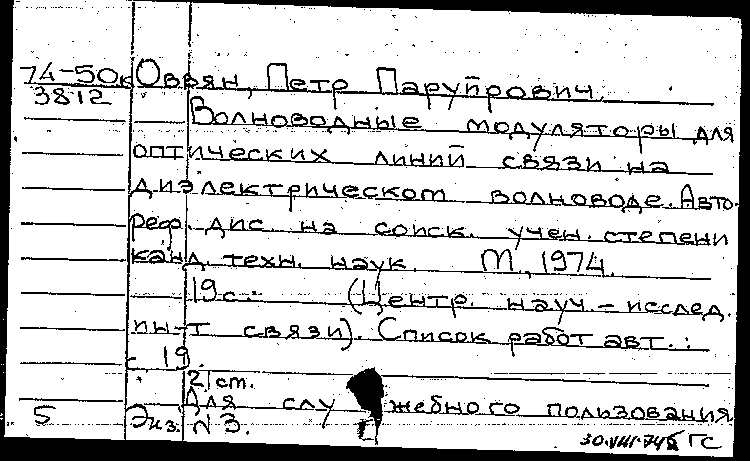 74-50к Оввян, Петр Паруйрович.
3812
Волноводные модуляторы для
оптических линий связи на
диэлектрическом волноводе. Авто-
реф. дис. на соиск. учен. степени
канд. техн. наук. М., 1974.
19 с. (Центр. науч.-исслед.
ин-т связи). Список работ авт.:
с. 19.
21 см.
Для служебного пользования
5 Экз. N 3.
30.VIII.74 ГС